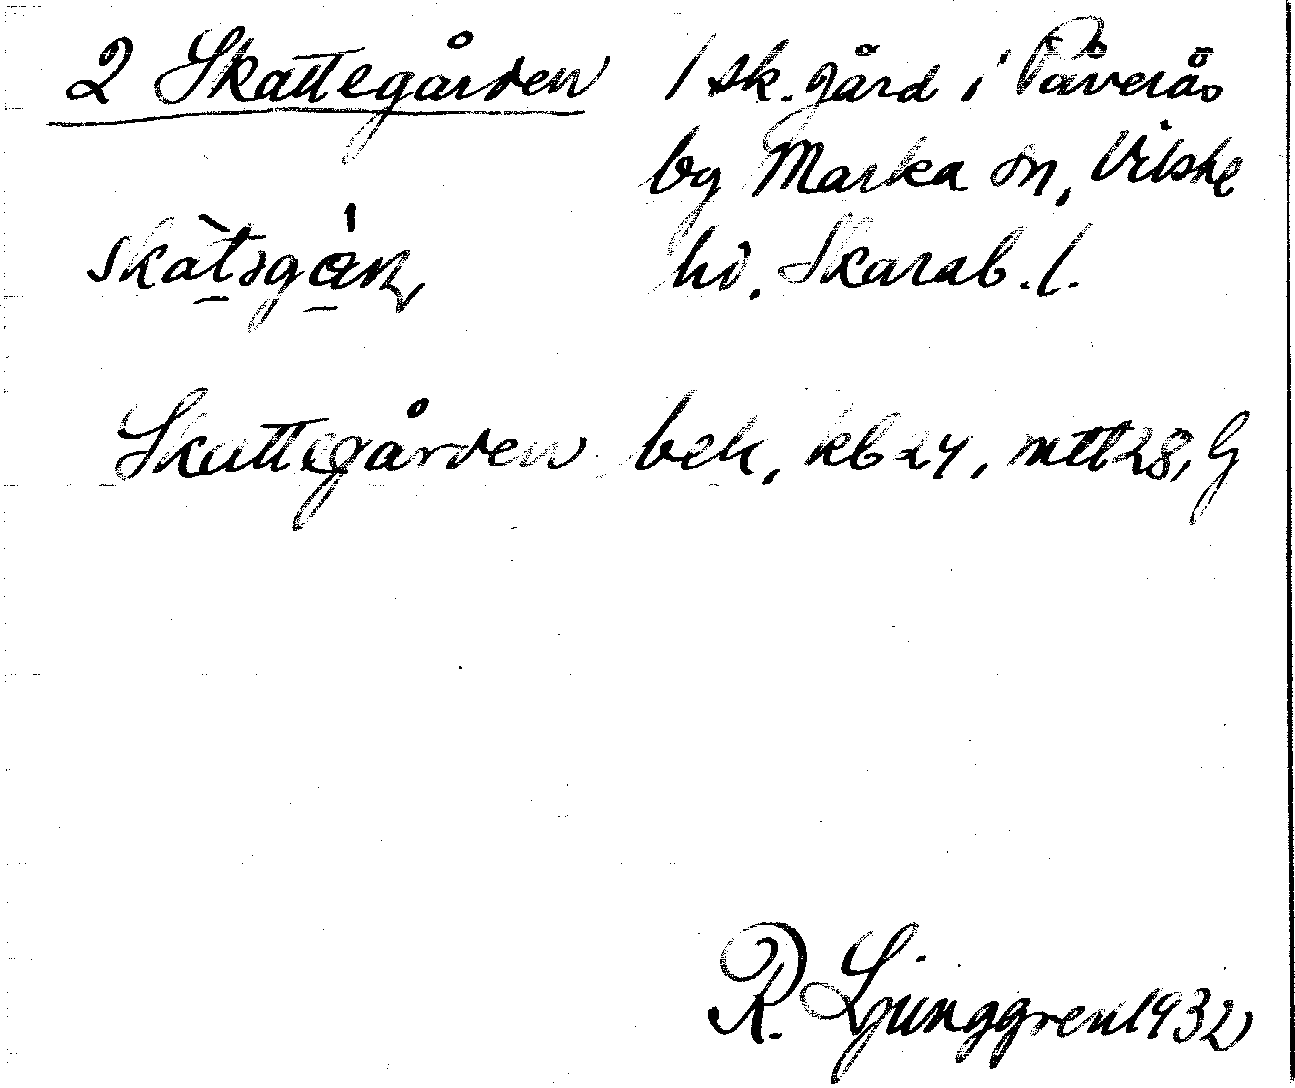 2 Skattegården 1 sk. gård i Påverås
by Marka sn, Vilske
skàtsgán, hd. Skarab. l.
Skattegården bek, kb 24, mtl 28, G
R. Ljunggren 1932